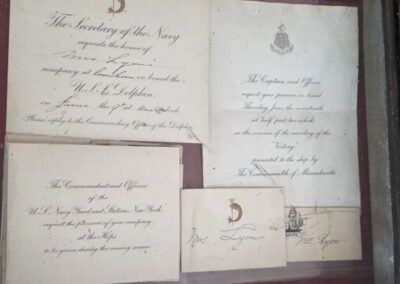 The Secretary of the Navy
requests the honor of
Mrs Lyon's
company at luncheon on board the
U.S.S. Dolphin
on June the 17th at
Please reply to the Commanding Officer of the Dolphin.
The Captain and Officers
request your presence on board
Thursday, June the seventeenth
at half past ten o'clock
on the occasion of the unveiling of the
"Victory"
presented to the ship by
The Commonwealth of Massachusetts
The Commandant and Officers
of the
U.S. Navy Yard and Station, New York,
request the pleasure of your company
at the Hops
to be given during the coming season
D
Mrs Lyon
Lyon